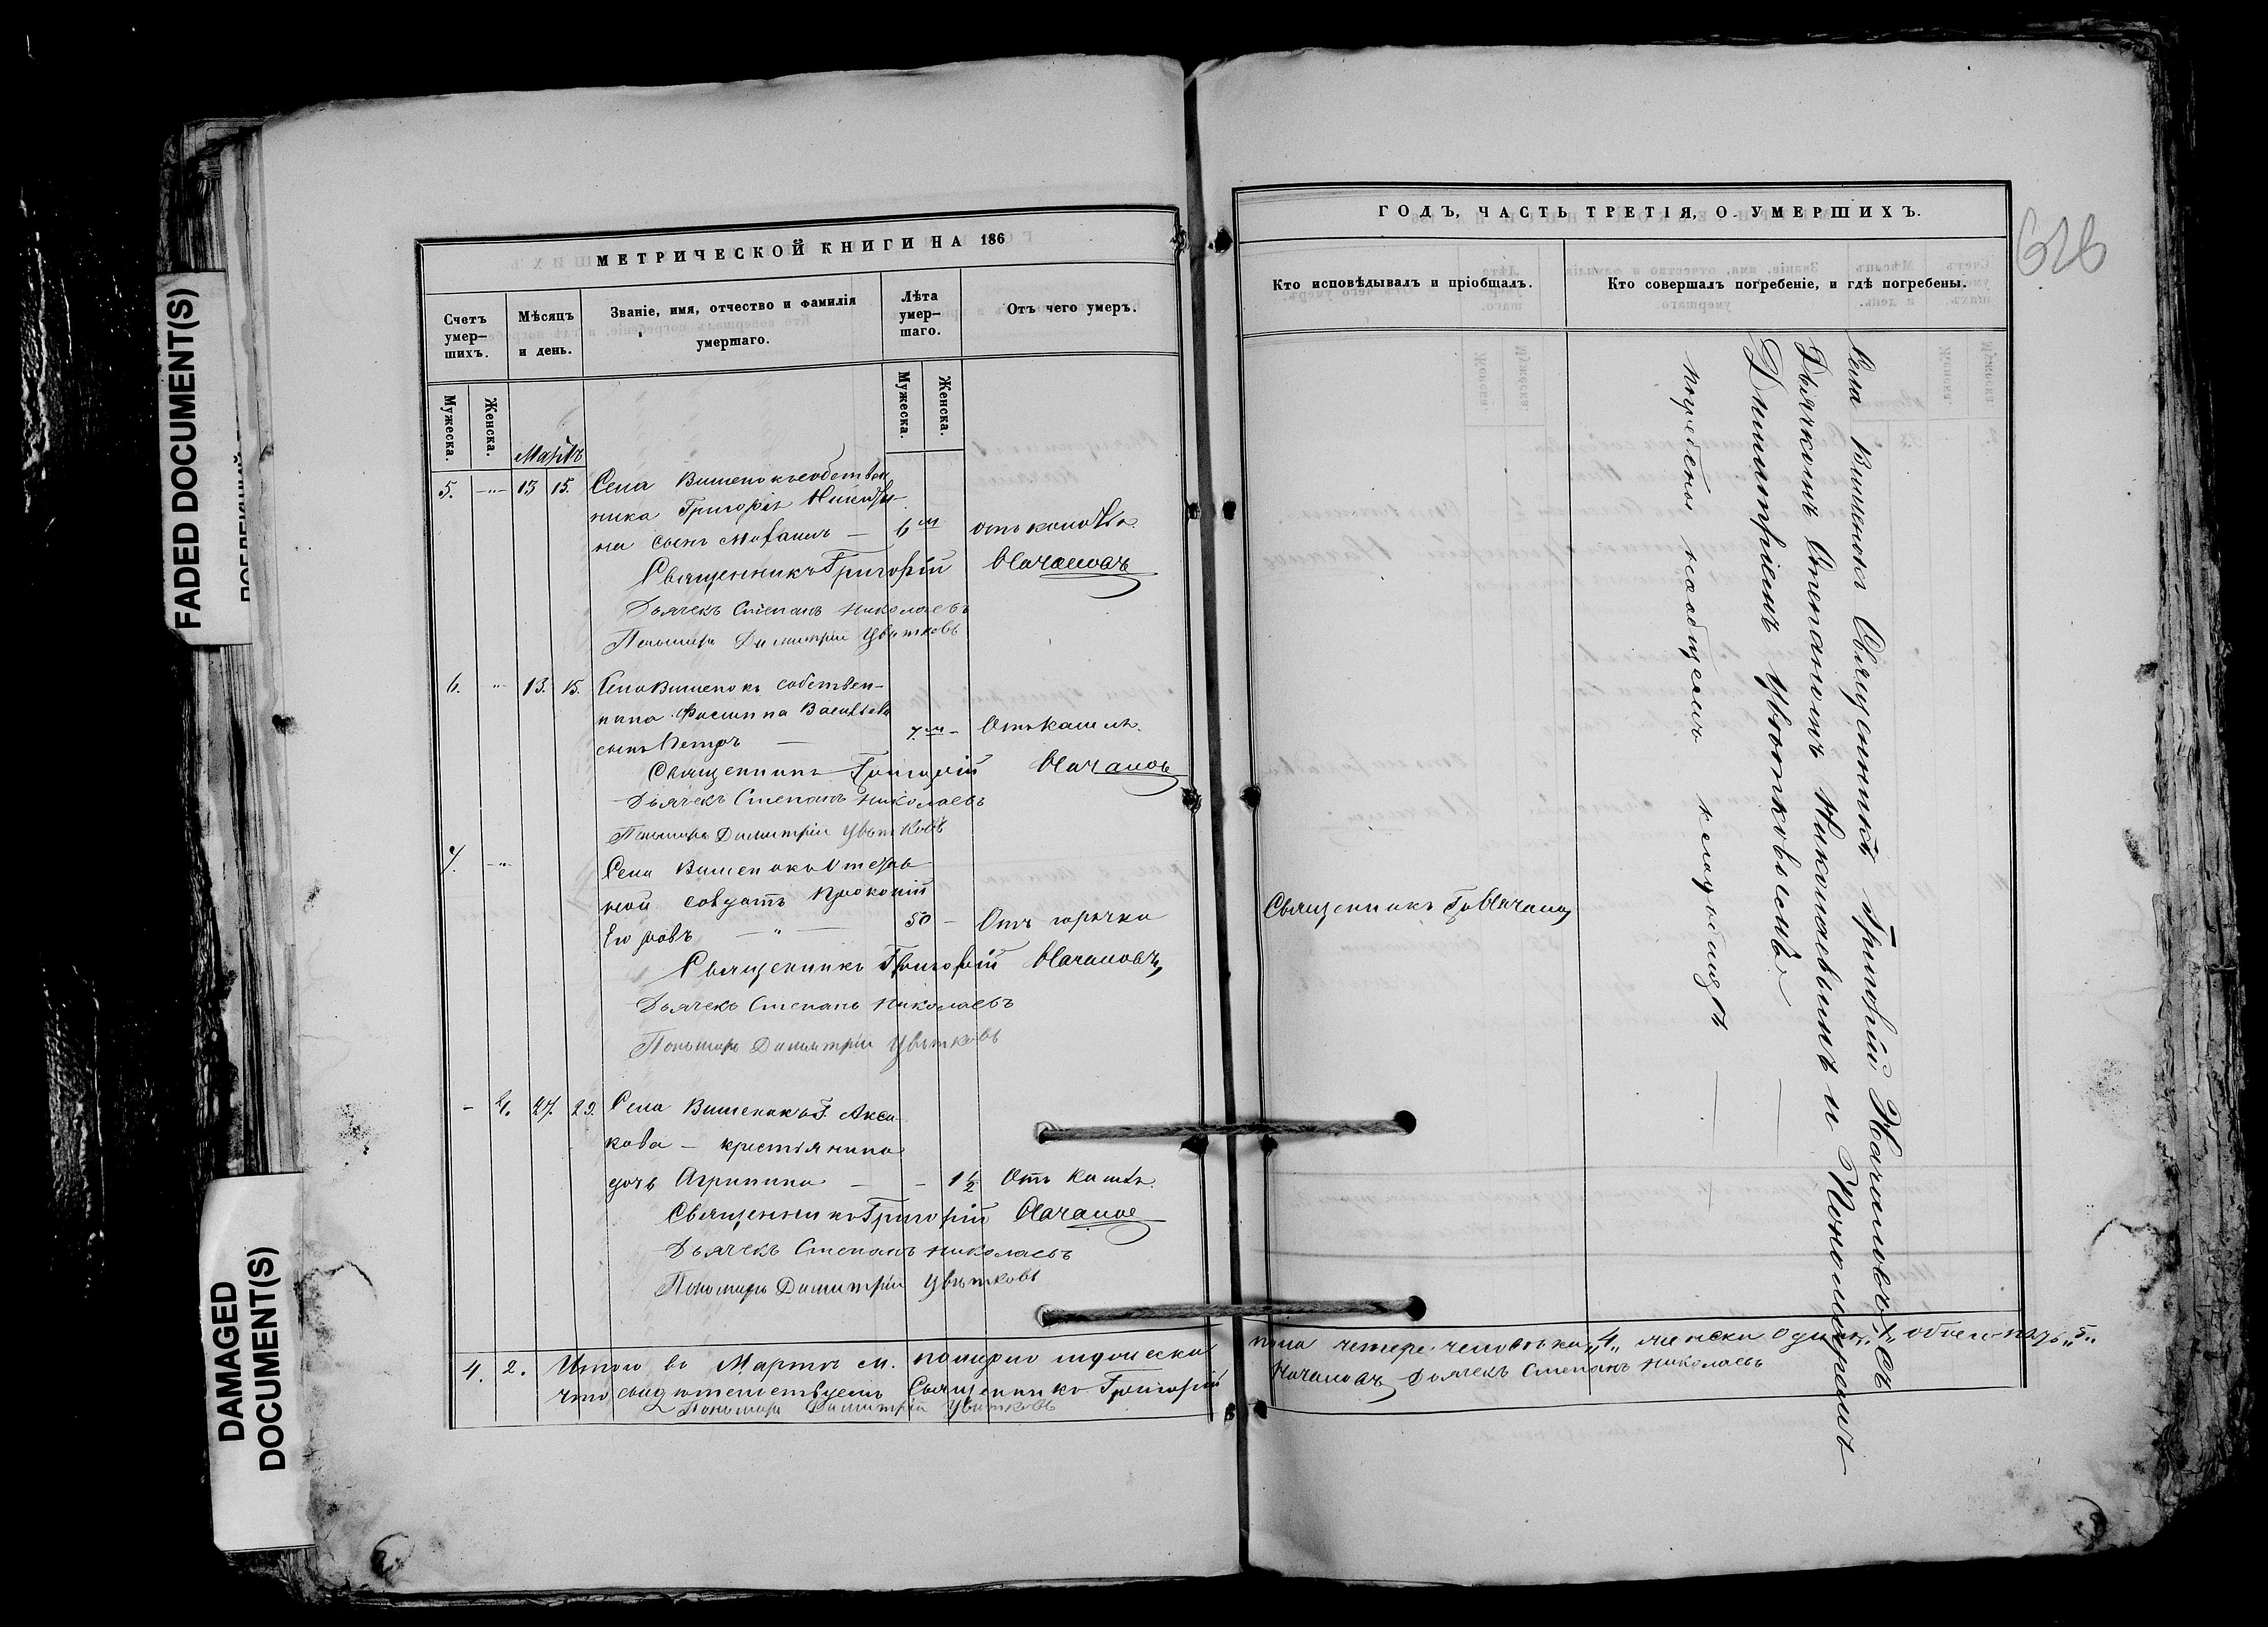 FADED DOCUMENT(S)
DAMAGED
DOCUMENT(S)
МЕТРИЧЕСКОЙ КНИГИ НА 186
Счетъ
умер-
шихъ.
Мѣсяцъ
и день.
Званіе, имя, отчество и фамилія
умершаго.
Лѣта
умер-
шаго.
Отъ чего умеръ.
Мужеска.
Женска.
Мужеска.
Женска.
Мартъ
5. 13 15. Села Вишенокъ собствен
ника Григорія
сынъ 6 м отъ
Священникъ Григорій Началовъ
Дьячекъ Степанъ Николаевъ
Пономарь Димитрій Цвѣтковъ
6. 13. 15. Села Вишенокъ собствен-
ника Васильева
сынъ Петръ 7. м Отъ кашля.
Священникъ Григорій Началовъ
Дьячекъ Степанъ Николаевъ
Пономарь Димитрій Цвѣтковъ
7. Села Вишенокъ
ной солдатъ Прокопій
50 Отъ горячки
Священникъ Григорій Началовъ
Дьячекъ Степанъ Николаевъ
Пономарь Димитрій Цвѣтковъ
27. 29. Села Вишенокъ Г. Акса
кова крестьянина
дочь Агрипина 1 1/2 Отъ кашля.
Священникъ Григорій Началовъ
Дьячекъ Степанъ Николаевъ
Пономарь Димитрій Цвѣтковъ
4. 2. Итого въ Мартѣ м. померло мужеска
что свидѣтельствуемъ Священникъ Григорій
Пономарь Димитрій Цвѣтковъ
ГОДЪ, ЧАСТЬ ТРЕТІЯ, О УМЕРШИХЪ.
626
Кто исповѣдывалъ и пріобщалъ.
Кто совершалъ погребеніе, и гдѣ погребены.
Села Вишенокъ Священникъ Григорій Началовъ, съ
Дьячкомъ Степаномъ Николаевымъ и Пономаремъ
Димитріемъ Цвѣтковымъ
погребены на общемъ кладбищѣ
Священникъ Гр. Началовъ
пола четыре человѣка „4„ женска одинъ „1„ обоего
Началовъ Дьячекъ Степанъ Николаевъ